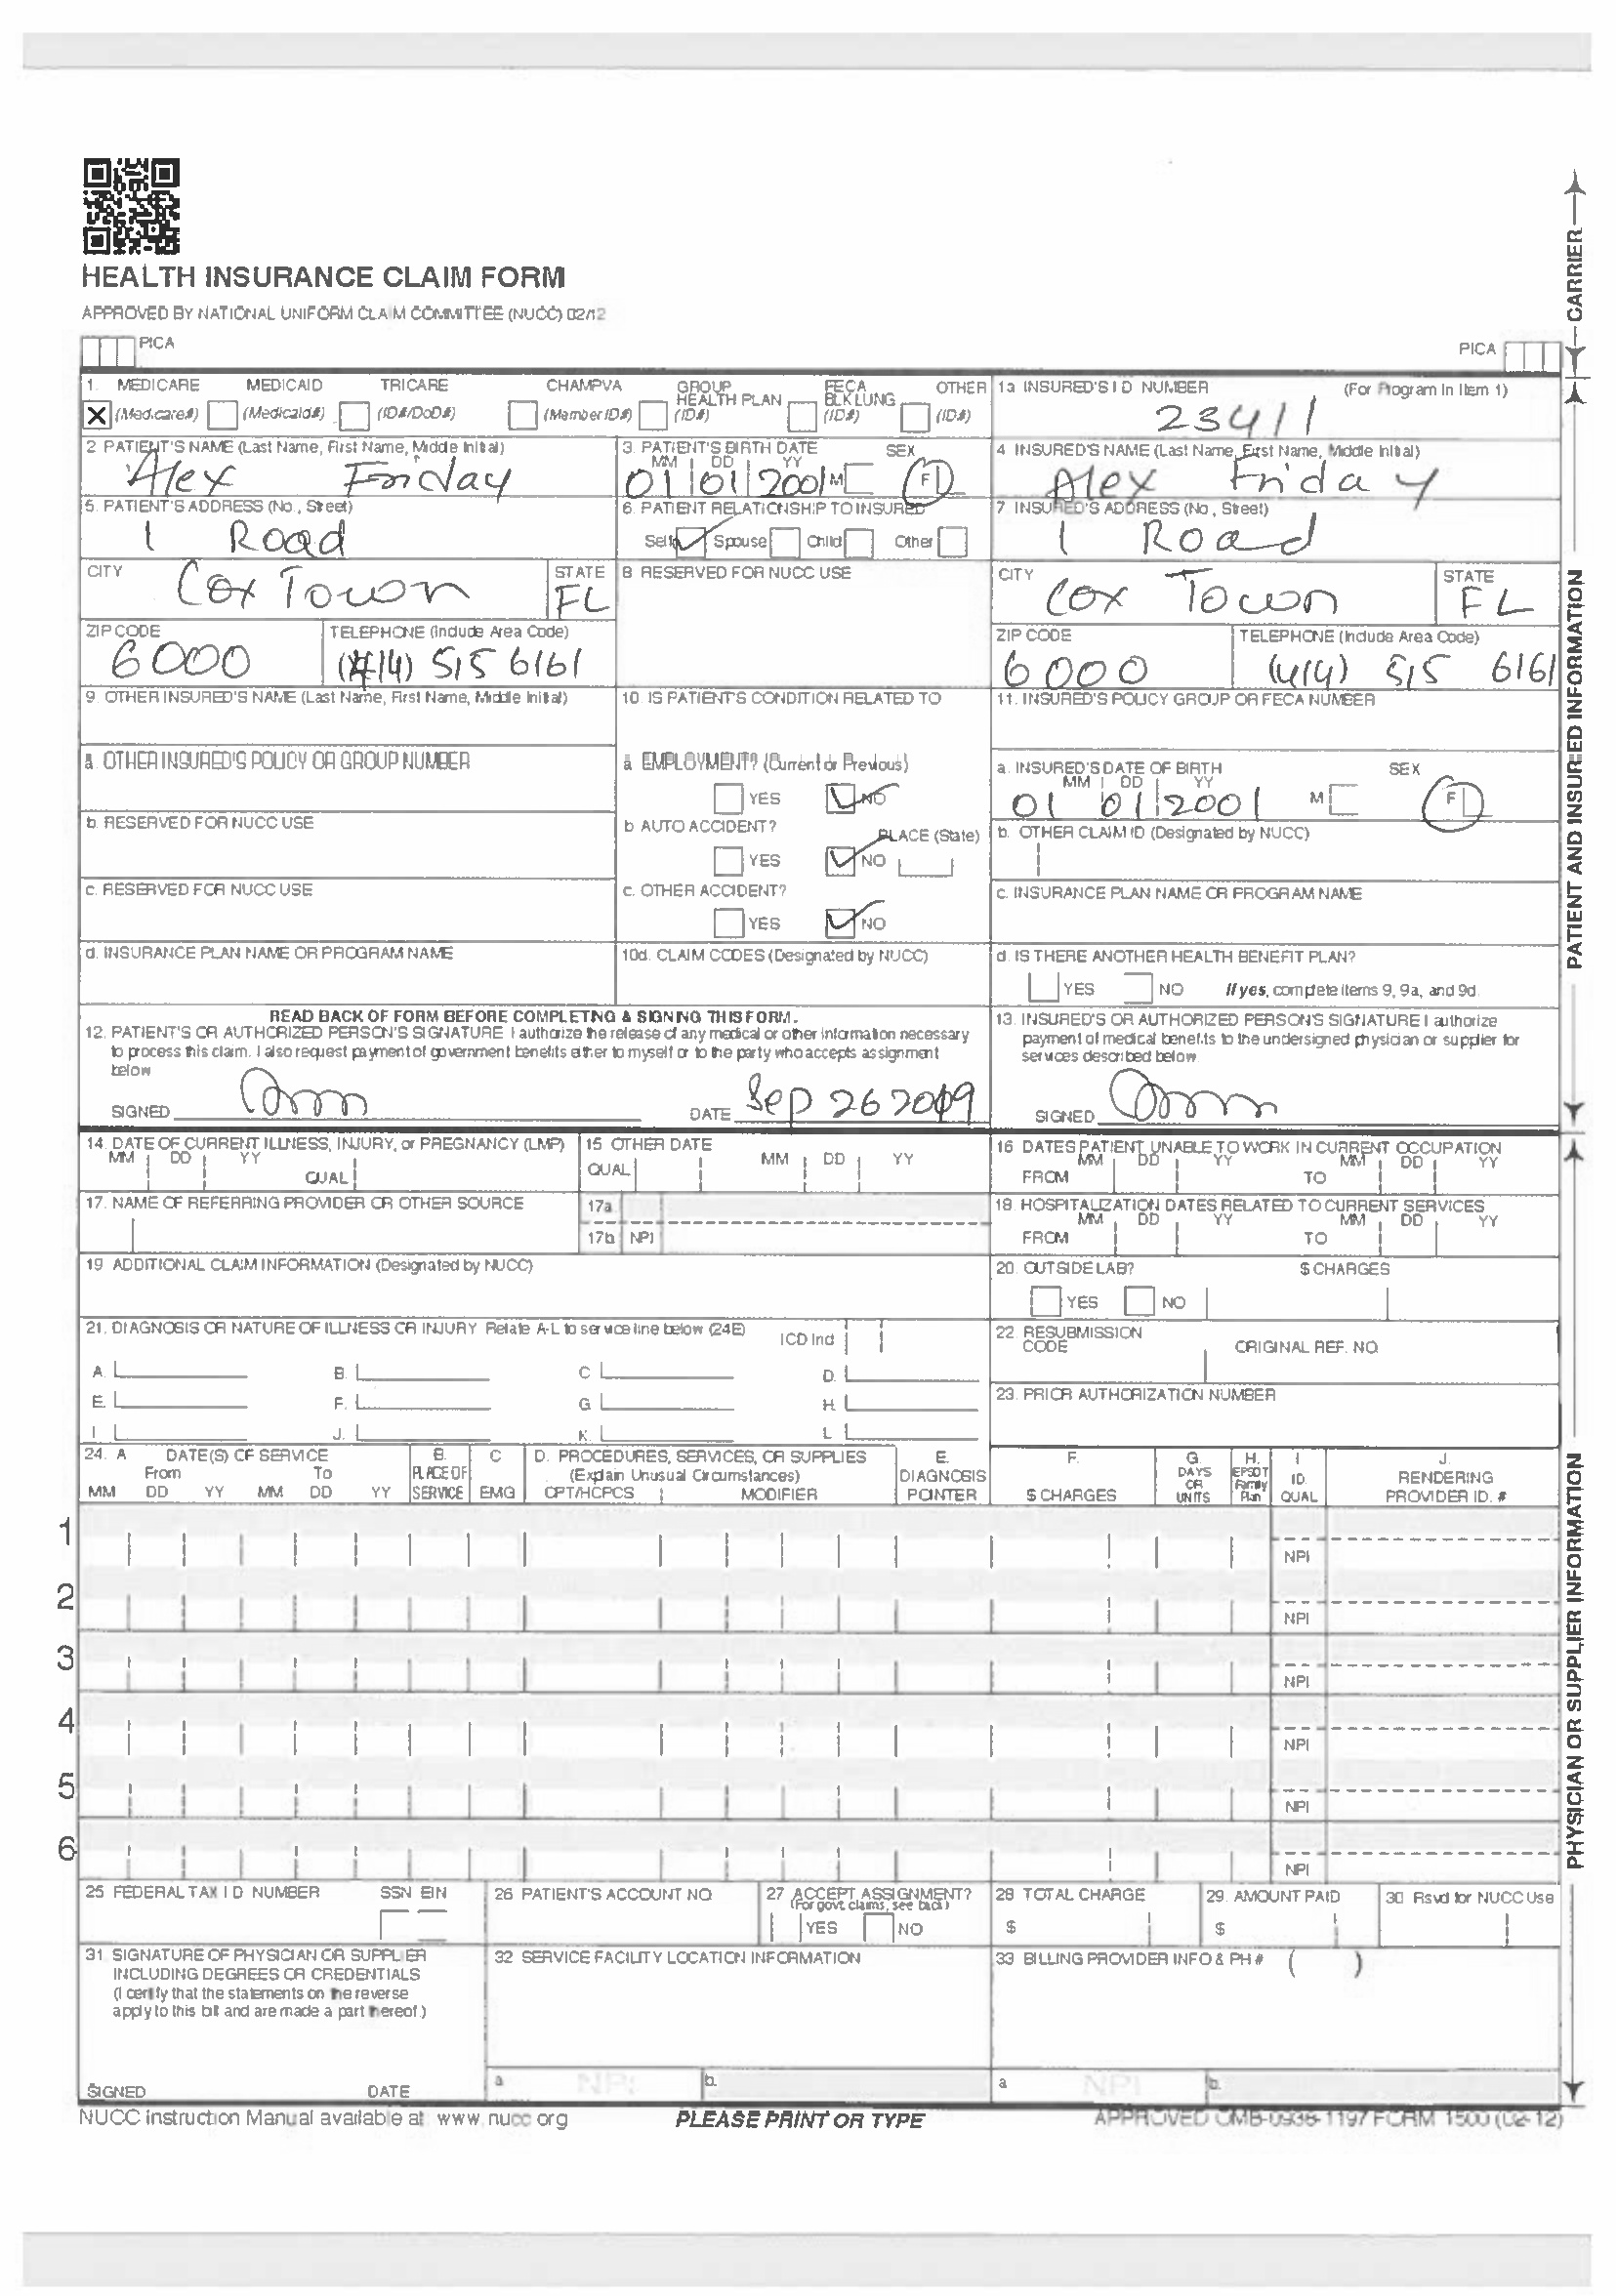 HEALTH INSURANCE CLAIM FORM
APPROVED BY NATIONAL UNIFORM CLAIM COMMITTEE (NUCC) 02/12
PICA
PICA
CARRIER
1. MEDICARE MEDICAID TRICARE CHAMPVA GROUP HEALTH PLAN FECA BLK LUNG OTHER
X (Medicare#) (Medicaid#) (ID#/DoD#) (Member ID#) (ID#) (ID#) (ID#)
1a INSURED'S I D NUMBER (For Program In Item 1)
23411
2 PATIENT'S NAME (Last Name, First Name, Middle Initial)
Alex Friday
3. PATIENT'S BIRTH DATE SEX
MM DD YY
01 01 2001 M F
4 INSURED'S NAME (Last Name, First Name, Middle Initial)
Alex Friday
5. PATIENT'S ADDRESS (No., Street)
1 Road
6. PATIENT RELATIONSHIP TO INSURED
Self Spouse Child Other
7. INSURED'S ADDRESS (No, Street)
1 Road
CITY STATE
Cox Town FL
8 RESERVED FOR NUCC USE
CITY STATE
Cox Town FL
ZIP CODE TELEPHONE (Include Area Code)
6000 (414) 515 6161
ZIP CODE TELEPHONE (Include Area Code)
6000 (414) 515 6161
9. OTHER INSURED'S NAME (Last Name, First Name, Middle Initial)
10. IS PATIENT'S CONDITION RELATED TO
11. INSURED'S POLICY GROUP OR FECA NUMBER
a. OTHER INSURED'S POLICY OR GROUP NUMBER
a EMPLOYMENT? (Current or Previous)
YES NO
a. INSURED'S DATE OF BIRTH SEX
MM DD YY
01 01 2001 M F
b. RESERVED FOR NUCC USE
b AUTO ACCIDENT? PLACE (State)
YES NO
b. OTHER CLAIM ID (Designated by NUCC)
c. RESERVED FOR NUCC USE
c. OTHER ACCIDENT?
YES NO
c. INSURANCE PLAN NAME OR PROGRAM NAME
d. INSURANCE PLAN NAME OR PROGRAM NAME
10d. CLAIM CODES (Designated by NUCC)
d. IS THERE ANOTHER HEALTH BENEFIT PLAN?
YES NO If yes, complete items 9, 9a, and 9d
READ BACK OF FORM BEFORE COMPLETING & SIGNING THIS FORM.
12. PATIENT'S OR AUTHORIZED PERSON'S SIGNATURE I authorize the release of any medical or other information necessary
to process this claim. I also request payment of government benefits either to myself or to the party who accepts assignment
below
SIGNED DATE Sep 26 2019
13. INSURED'S OR AUTHORIZED PERSON'S SIGNATURE I authorize
payment of medical benefits to the undersigned physician or supplier for
services described below.
SIGNED
PATIENT AND INSURED INFORMATION
14. DATE OF CURRENT ILLNESS, INJURY, or PREGNANCY (LMP)
MM DD YY QUAL
15 OTHER DATE
QUAL MM DD YY
16 DATES PATIENT UNABLE TO WORK IN CURRENT OCCUPATION
MM DD YY MM DD YY
FROM TO
17. NAME OF REFERRING PROVIDER OR OTHER SOURCE
17a
17b NPI
18. HOSPITALIZATION DATES RELATED TO CURRENT SERVICES
MM DD YY MM DD YY
FROM TO
19 ADDITIONAL CLAIM INFORMATION (Designated by NUCC)
20. OUTSIDE LAB? $ CHARGES
YES NO
21. DIAGNOSIS OR NATURE OF ILLNESS OR INJURY Relate A-L to service line below (24E) ICD Ind
A. B. C D.
E. F. G H.
I. J. K. L
22. RESUBMISSION CODE ORIGINAL REF. NO
23. PRIOR AUTHORIZATION NUMBER
24. A DATE(S) OF SERVICE B. C D. PROCEDURES, SERVICES, OR SUPPLIES E. F. G. H. I J.
From To PLACE OF (Explain Unusual Circumstances) DIAGNOSIS DAYS OR EPSDT Family ID. RENDERING
MM DD YY MM DD YY SERVICE EMG CPT/HCPCS MODIFIER POINTER $ CHARGES UNITS Plan QUAL PROVIDER ID. #
1
NPI
2
NPI
3
NPI
4
NPI
5
NPI
6
NPI
25 FEDERAL TAX I D NUMBER SSN EIN
26 PATIENT'S ACCOUNT NO
27 ACCEPT ASSIGNMENT?
(For govt claims, see back)
YES NO
28 TOTAL CHARGE
$
29. AMOUNT PAID
$
30 Rsvd for NUCC Use
31. SIGNATURE OF PHYSICIAN OR SUPPLIER
INCLUDING DEGREES OR CREDENTIALS
(I certify that the statements on the reverse
apply to this bill and are made a part thereof.)
SIGNED DATE
32 SERVICE FACILITY LOCATION INFORMATION
a NPI b.
33 BILLING PROVIDER INFO & PH # ( )
a NPI b.
PHYSICIAN OR SUPPLIER INFORMATION
NUCC Instruction Manual available at www.nucc org
PLEASE PRINT OR TYPE
APPROVED OMB-0938-1197 FORM 1500 (02-12)